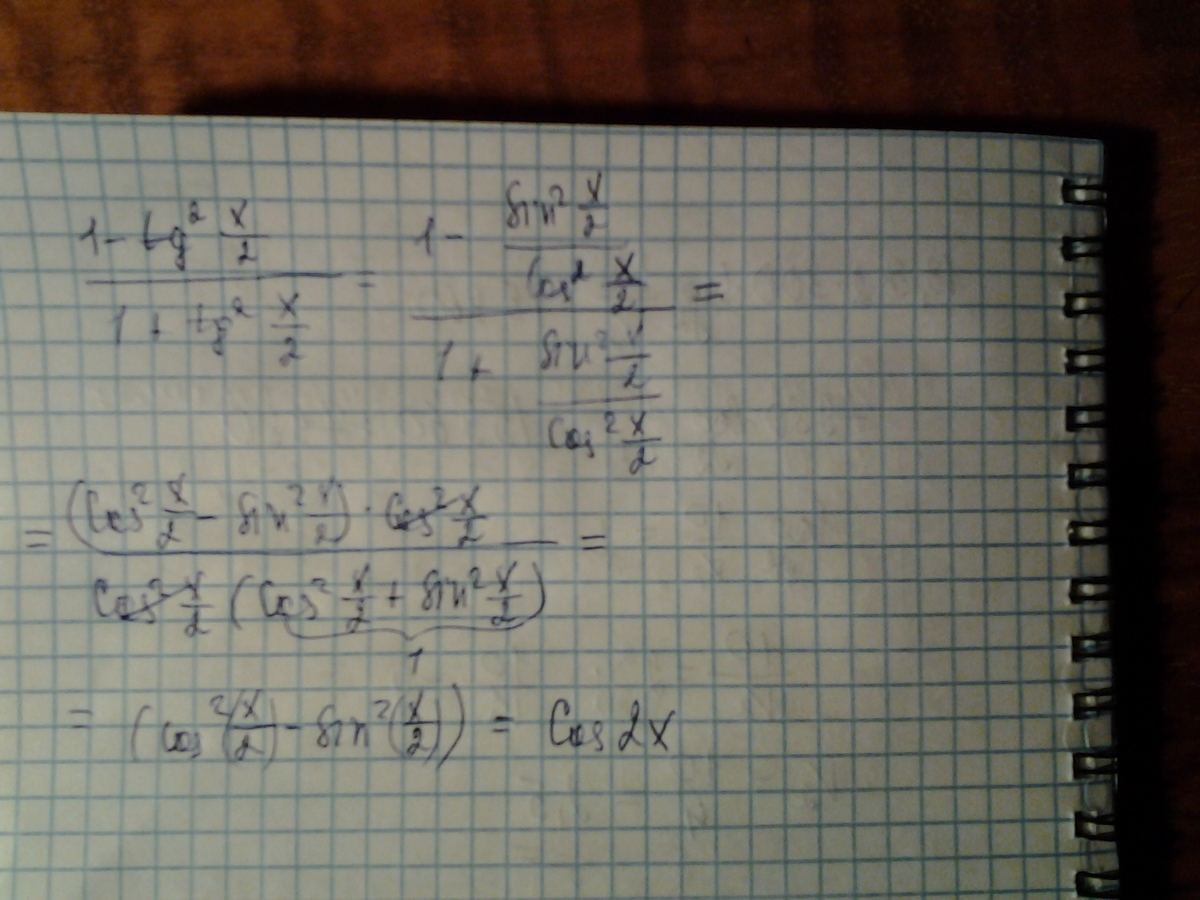 (1 - tg² x/2) / (1 + tg² x/2) = (1 - (sin² x/2)/(cos² x/2)) / (1 + (sin² x/2)/(cos² x/2)) =
= ((cos² x/2 - sin² x/2) · cos² x/2) / (cos² x/2 (cos² x/2 + sin² x/2)) =
1
= (cos² (x/2) - sin² (x/2)) = cos 2x